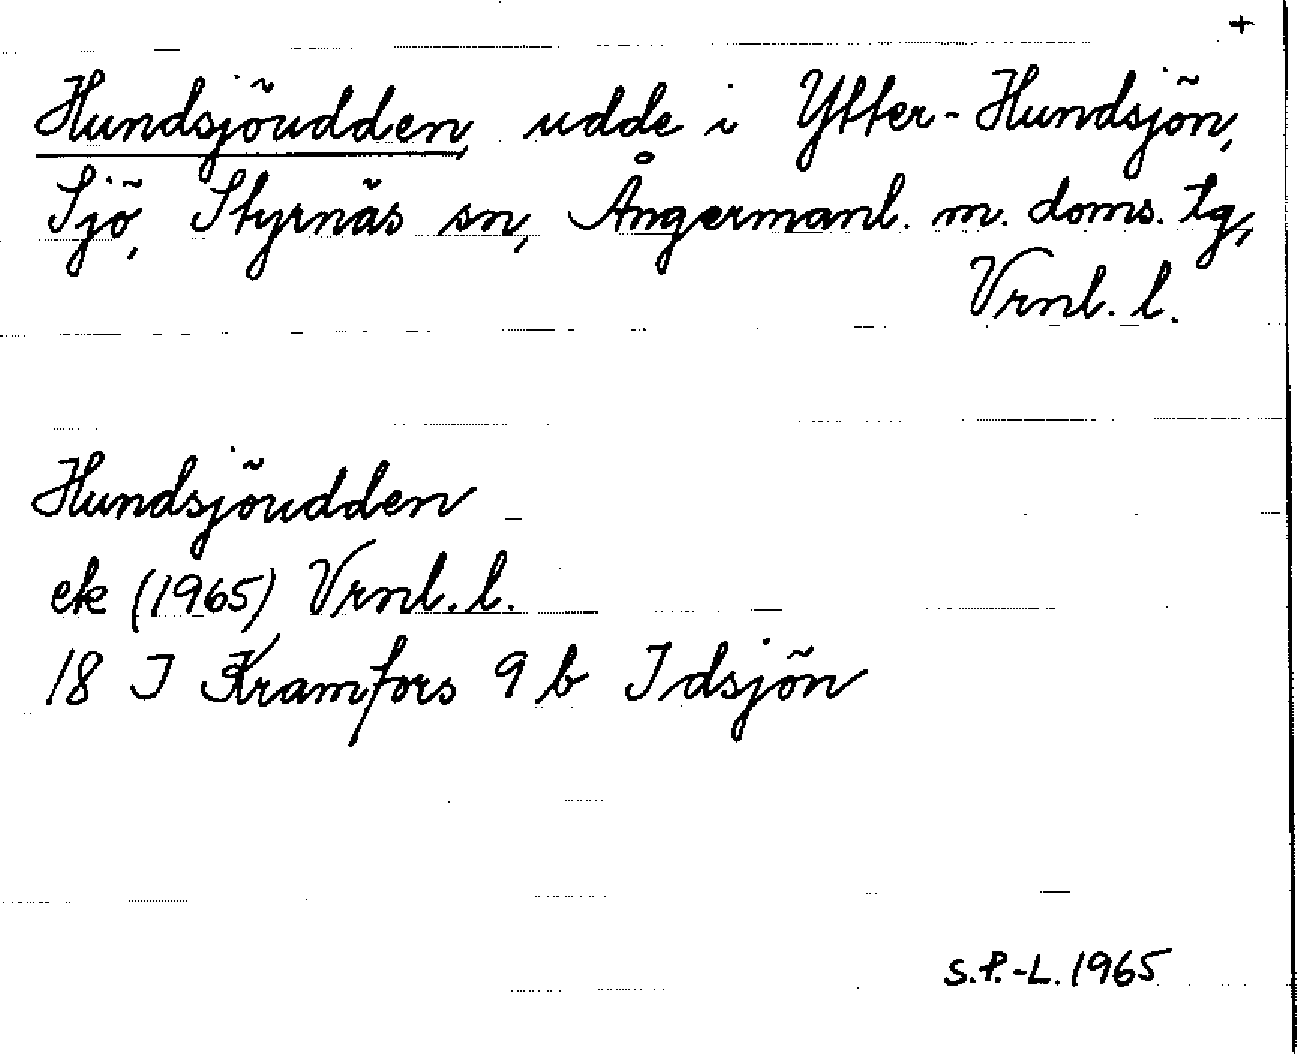 +
Hundsjöudden, udde i Ytter-Hundsjön,
Sjö, Styrnäs sn, Ångermanl. m. doms. tg,
Vrnl. l.
Hundsjöudden
ek (1965) Vrnl. l.
18 I Kramfors 9 b Idsjön
S.P.-L. 1965